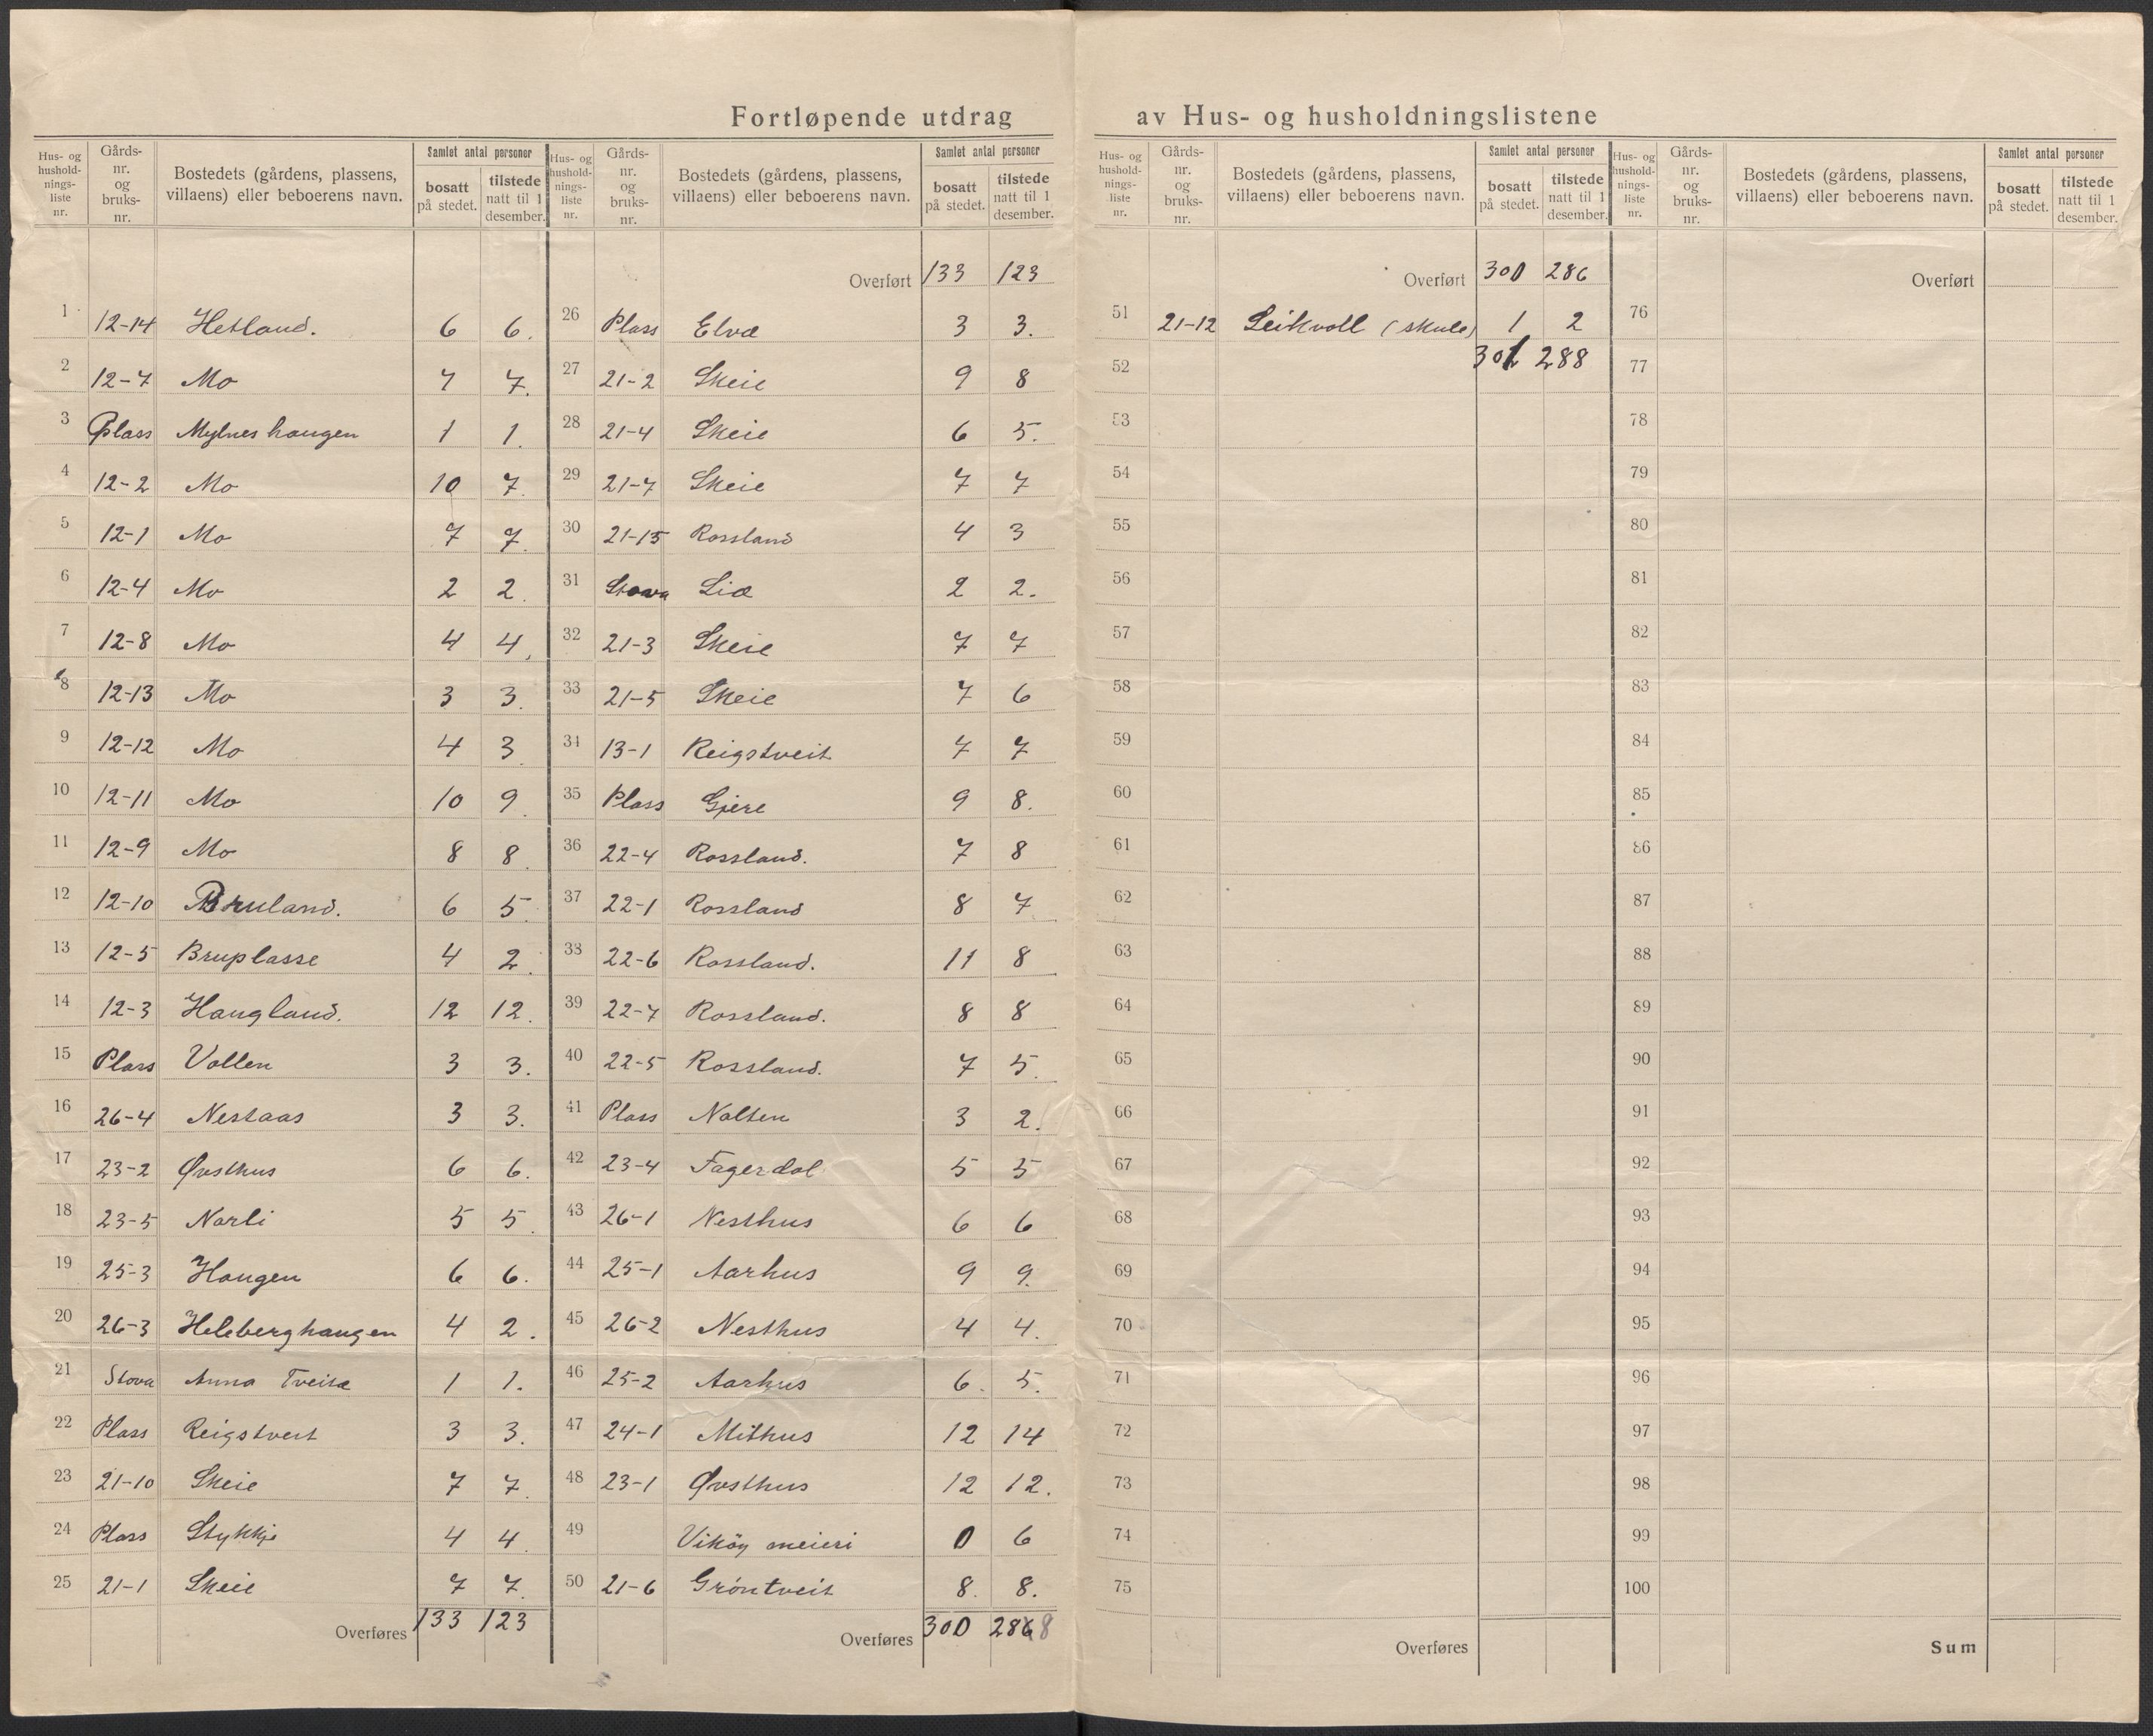 Fortløpende utdrag av Hus- og husholdningslistene
Hus- og husholdnings- liste nr. | Gårds- nr. og bruks- nr. | Bostedets (gårdens, plassens, villaens) eller beboerens navn. | Samlet antal personer | bosatt på stedet. | tilstede natt til 1 desember.
1 12-14 Hetland. 6 6.
2 12-7 Mo 7 7.
3 Plass Mylneshaugen 1 1.
4 12-2 Mo 10 7.
5 12-1 Mo 7 7.
6 12-4 Mo 2 2.
7 12-8 Mo 4 4.
8 12-13 Mo 3 3.
9 12-12 Mo 4 3.
10 12-11 Mo 10 9.
11 12-9 Mo 8 8.
12 12-10 Bruland. 6 5.
13 12-5 Bruplasse 4 2.
14 12-3 Haugland. 12 12.
15 Plass Vollen 3 3.
16 26-4 Nestaas 3 3.
17 23-2 Øvsthus 6 6.
18 23-5 Narli 5 5.
19 25-3 Haugen 6 6.
20 26-3 Heleberghaugen 4 2.
21 Stova Anna Tveita 1 1.
22 Plass Reigstveit 3 3.
23 21-10 Skeie 7 7.
24 Plass Stykkje 4 4.
25 21-1 Skeie 7 7.
Overføres 133 123
Hus- og husholdnings- liste nr. | Gårds- nr. og bruks- nr. | Bostedets (gårdens, plassens, villaens) eller beboerens navn. | Samlet antal personer | bosatt på stedet. | tilstede natt til 1 desember.
Overført 133 123
26 Plass Elva 3 3.
27 21-2 Skeie 9 8
28 21-4 Skeie 6 5.
29 21-7 Skeie 7 7
30 21-15 Rossland 4 3
31 Stova Lia 2 2.
32 21-3 Skeie 7 7
33 21-5 Skeie 7 6
34 13-1 Reigstveit 7 7
35 Plass Gjere 9 8.
36 22-4 Rossland. 7 8
37 22-1 Rossland 8 7
38 22-6 Rossland. 11 8
39 22-7 Rossland. 8 8
40 22-5 Rossland. 7 5.
41 Plass Nalten 3 2.
42 23-4 Fagerdal 5 5
43 26-1 Nesthus 6 6
44 25-1 Aarhus 9 9.
45 26-2 Nesthus 4 4.
46 25-2 Aarhus 6. 5.
47 24-1 Mithus 12 14
48 23-1 Øvsthus 12 12.
49 Vikøy meieri 0 6
50 21-6 Gröntveit 8. 8.
Overføres 300 286 8
Hus- og husholdnings- liste nr. | Gårds- nr. og bruks- nr. | Bostedets (gårdens, plassens, villaens) eller beboerens navn. | Samlet antal personer | bosatt på stedet. | tilstede natt til 1 desember.
Overført 300 286
51 21-12 Leikvoll (skule) 1 2
52 301 288
53
54
55
56
57
58
59
60
61
62
63
64
65
66
67
68
69
70
71
72
73
74
75
Overføres
Hus- og husholdnings- liste nr. | Gårds- nr. og bruks- nr. | Bostedets (gårdens, plassens, villaens) eller beboerens navn. | Samlet antal personer | bosatt på stedet. | tilstede natt til 1 desember.
Overført
76
77
78
79
80
81
82
83
84
85
86
87
88
89
90
91
92
93
94
95
96
97
98
99
100
Sum